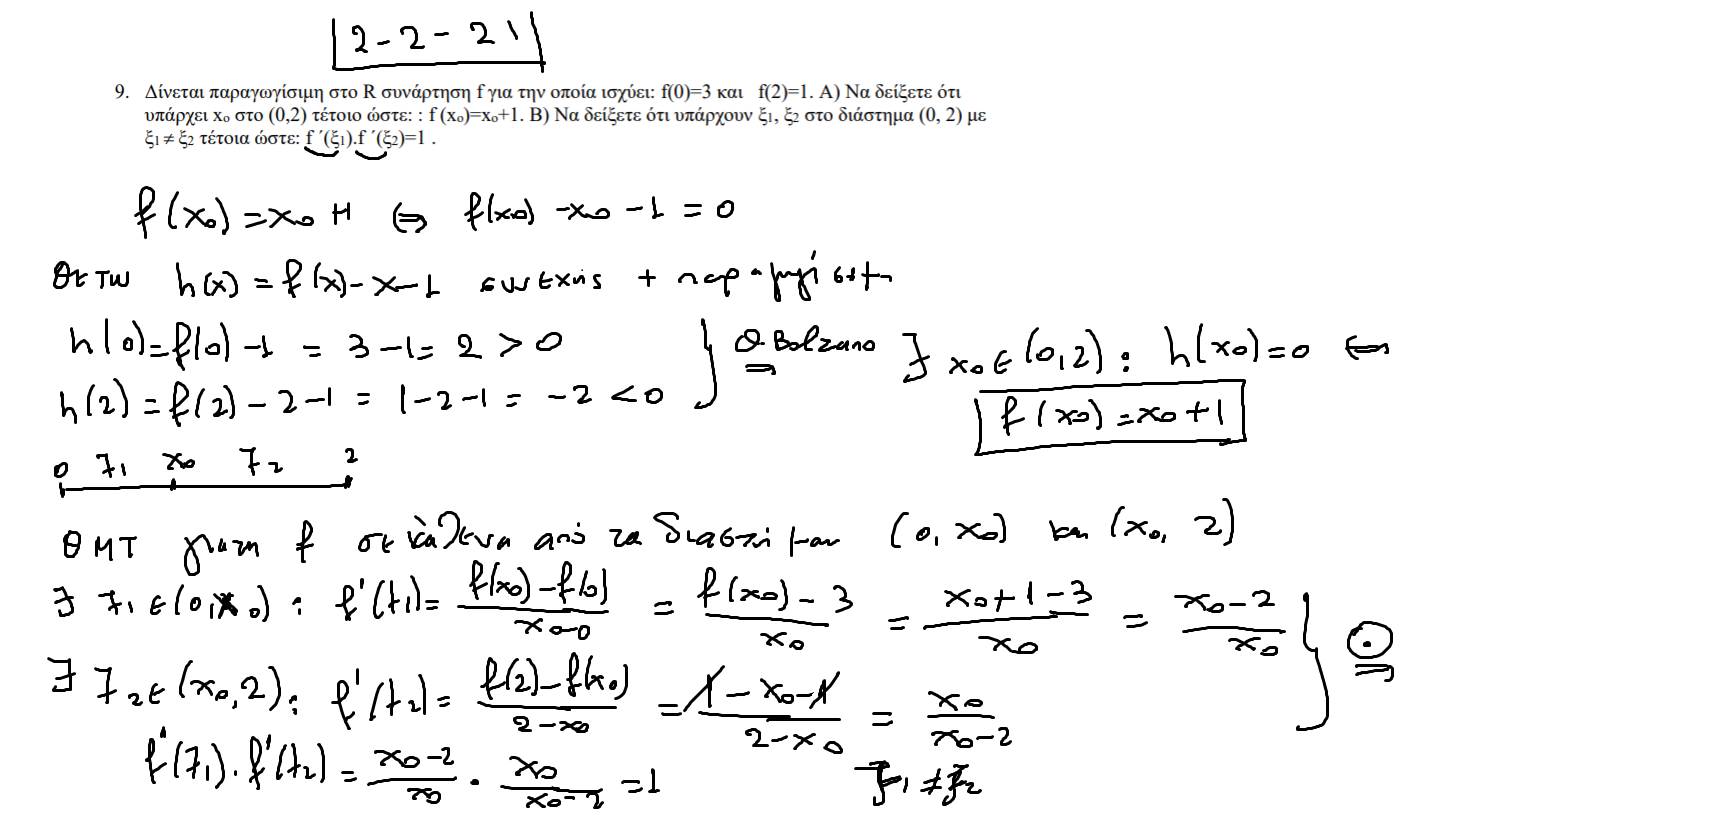 2-2-21
9. Δίνεται παραγωγίσιμη στο R συνάρτηση f για την οποία ισχύει: f(0)=3 και f(2)=1. Α) Να δείξετε ότι
υπάρχει x₀ στο (0,2) τέτοιο ώστε: : f (x₀)=x₀+1. Β) Να δείξετε ότι υπάρχουν ξ₁, ξ₂ στο διάστημα (0, 2) με
ξ₁ ≠ ξ₂ τέτοια ώστε: f ´(ξ₁).f ´(ξ₂)=1 .
f(x₀) = x₀ +1 ⇔ f(x₀) -x₀ -1 = 0
Θετω h(x) = f(x)-x-1 συνεχής + παραγωγίσιμη
h(0)=f(0)-1 = 3-1= 2 > 0
h(2) = f(2)-2-1 = 1-2-1 = -2 <0
} Θ. Bolzano ⇒ ∃ x₀ ∈ (0,2) : h(x₀)=0 ⇔
f(x₀) = x₀+1
0 ξ₁ x₀ ξ₂ 2
ΘΜΤ για τη f σε κάθενα από τα διαστήματα (0, x₀) και (x₀, 2)
∃ ξ₁ ∈ (0,x₀) : f'(ξ₁)= f(x₀)-f(0) / x₀-0 = f(x₀)-3 / x₀ = x₀+1-3 / x₀ = x₀-2 / x₀
∃ ξ₂ ∈ (x₀,2) : f'(ξ₂)= f(2)-f(x₀) / 2-x₀ = 1-x₀-1 / 2-x₀ = x₀ / x₀-2 } ⊙ ⇒
f'(ξ₁).f'(ξ₂) = x₀-2 / x₀ · x₀ / x₀-2 = 1 ξ₁ ≠ ξ₂